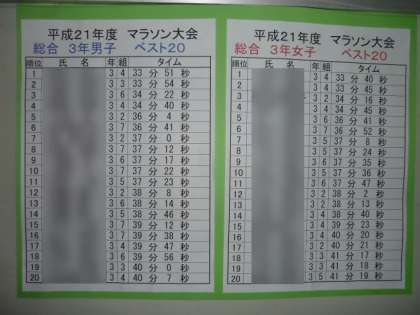 平成21年度 マラソン大会
総合 3年男子 ベスト20
順位 氏 名 年 組 タイム
1 3 4 33 分 51 秒
2 3 4 33 分 54 秒
3 3 6 34 分 22 秒
4 3 4 34 分 40 秒
5 3 2 36 分 4 秒
6 3 7 36 分 41 秒
7 3 2 37 分 0 秒
8 3 7 37 分 12 秒
9 3 6 37 分 17 秒
10 3 7 37 分 22 秒
11 3 5 37 分 23 秒
12 3 2 38 分 8 秒
13 3 6 38 分 14 秒
14 3 5 38 分 46 秒
15 3 7 39 分 12 秒
16 3 7 39 分 38 秒
17 3 2 39 分 47 秒
18 3 6 39 分 56 秒
19 3 3 40 分 0 秒
20 3 4 40 分 7 秒
平成21年度 マラソン大会
総合 3年女子 ベスト20
順位 氏 名 年 組 タイム
1 3 4 33 分 40 秒
2 3 4 33 分 45 秒
3 3 2 34 分 16 秒
4 3 4 34 分 45 秒
5 3 6 36 分 41 秒
6 3 7 36 分 52 秒
7 3 5 37 分 8 秒
8 3 5 37 分 24 秒
9 3 6 37 分 35 秒
10 3 37 分 36 秒
11 3 6 37 分 47 秒
12 3 2 38 分 2 秒
13 3 2 38 分 13 秒
14 3 38 分 40 秒
15 3 39 分 23 秒
16 3 39 分 40 秒
17 3 2 40 分 21 秒
18 3 3 40 分 17 秒
19 3 5 41 分 31 秒
20 3 4 41 分 36 秒